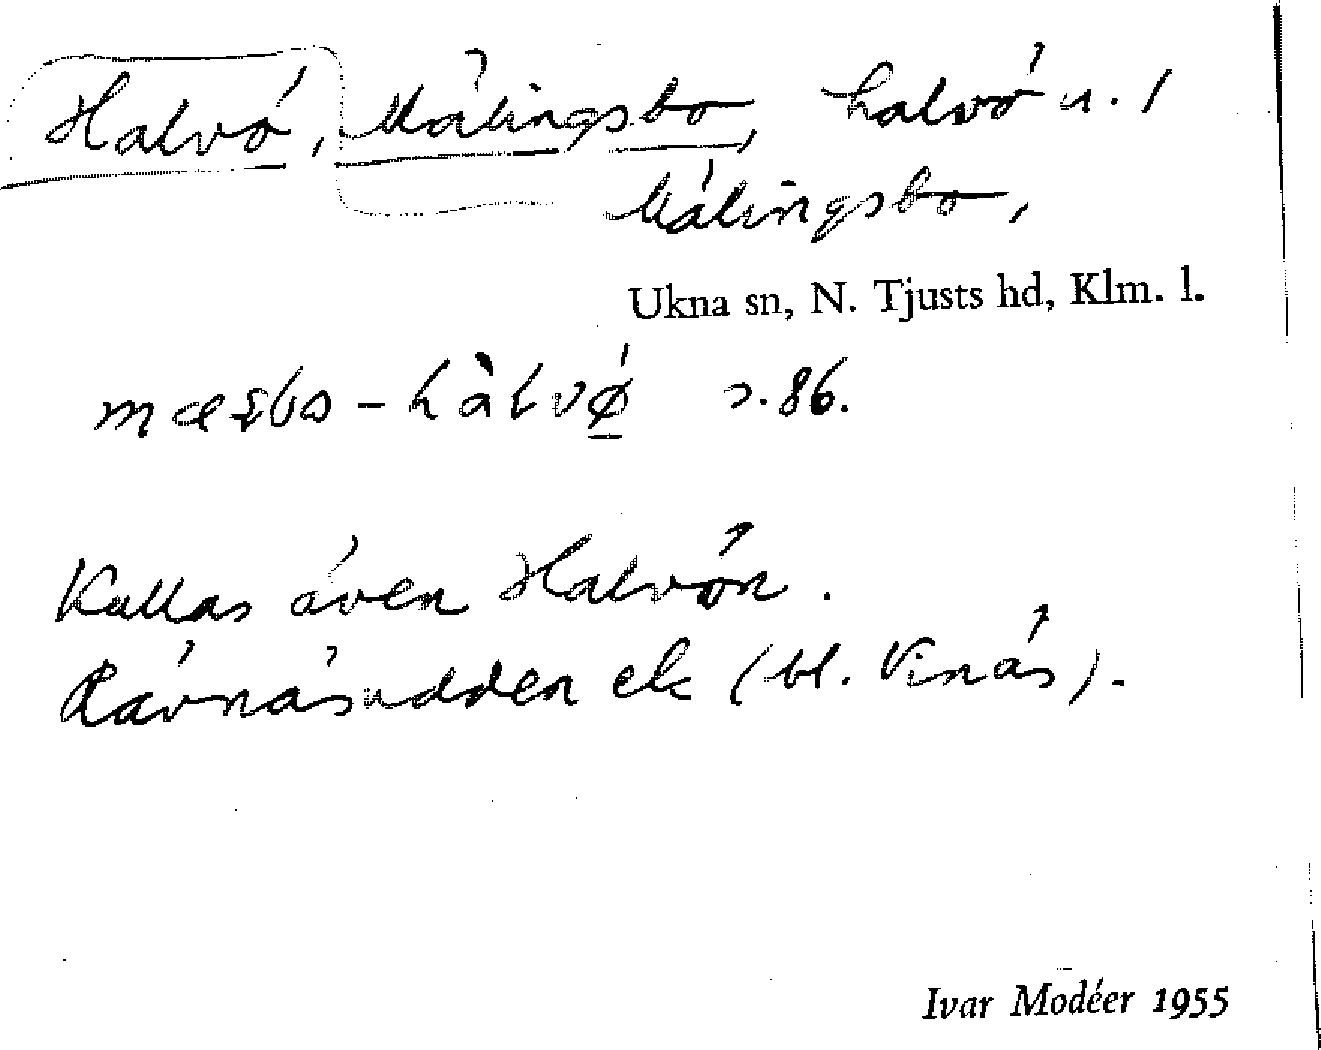 Halvö, Mälingsbo, halvö u. /
Mälingsbo,
Ukna sn, N. Tjusts hd, Klm. l.
hàlvø s. 86.
Kallas även Halvön.
Rävnäsudden ek (bl. Vinäs).
Ivar Modéer 1955